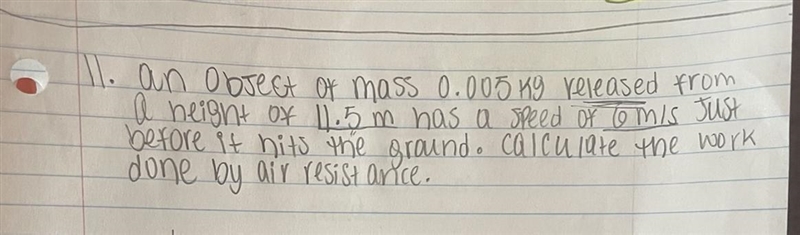 11. an object of mass 0.005 kg released from
a height of 11.5 m has a speed of 6 m/s Just
before it hits the ground. calculate the work
done by air resistance.